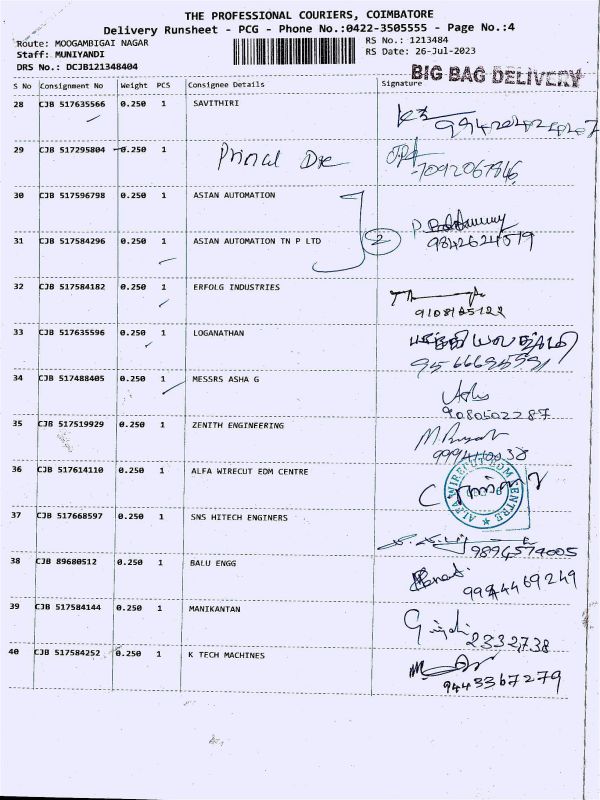 THE PROFESSIONAL COURIERS, COIMBATORE
Delivery Runsheet - PCG - Phone No.:0422-3505555 - Page No.:4
Route: MOOGAMBIGAI NAGAR RS No.: 1213484
Staff: MUNIYANDI RS Date: 26-Jul-2023
DRS No.: DCJB121348404
BIG BAG DELIVERY
S No Consignment No Weight PCS Consignee Details Signature
28 CJB 517635566 0.250 1 SAVITHIRI
29 CJB 517295804 0.250 1
7092067816
30 CJB 517596798 0.250 1 ASIAN AUTOMATION
31 CJB 517584296 0.250 1 ASIAN AUTOMATION TN P LTD 2
9842624519
32 CJB 517584182 0.250 1 ERFOLG INDUSTRIES
9108185122
33 CJB 517635596 0.250 1 LOGANATHAN
34 CJB 517488405 0.250 1 MESSRS ASHA G
9080502287
35 CJB 517519929 0.250 1 ZENITH ENGINEERING
36 CJB 517614110 0.250 1 ALFA WIRECUT EDM CENTRE
ALFA WIRECUT EDM CENTRE
37 CJB 517668597 0.250 1 SNS HITECH ENGINERS
9894574005
38 CJB 89680512 0.250 1 BALU ENGG
9994469249
39 CJB 517584144 0.250 1 MANIKANTAN
2332738
40 CJB 517584252 0.250 1 K TECH MACHINES
9443367279